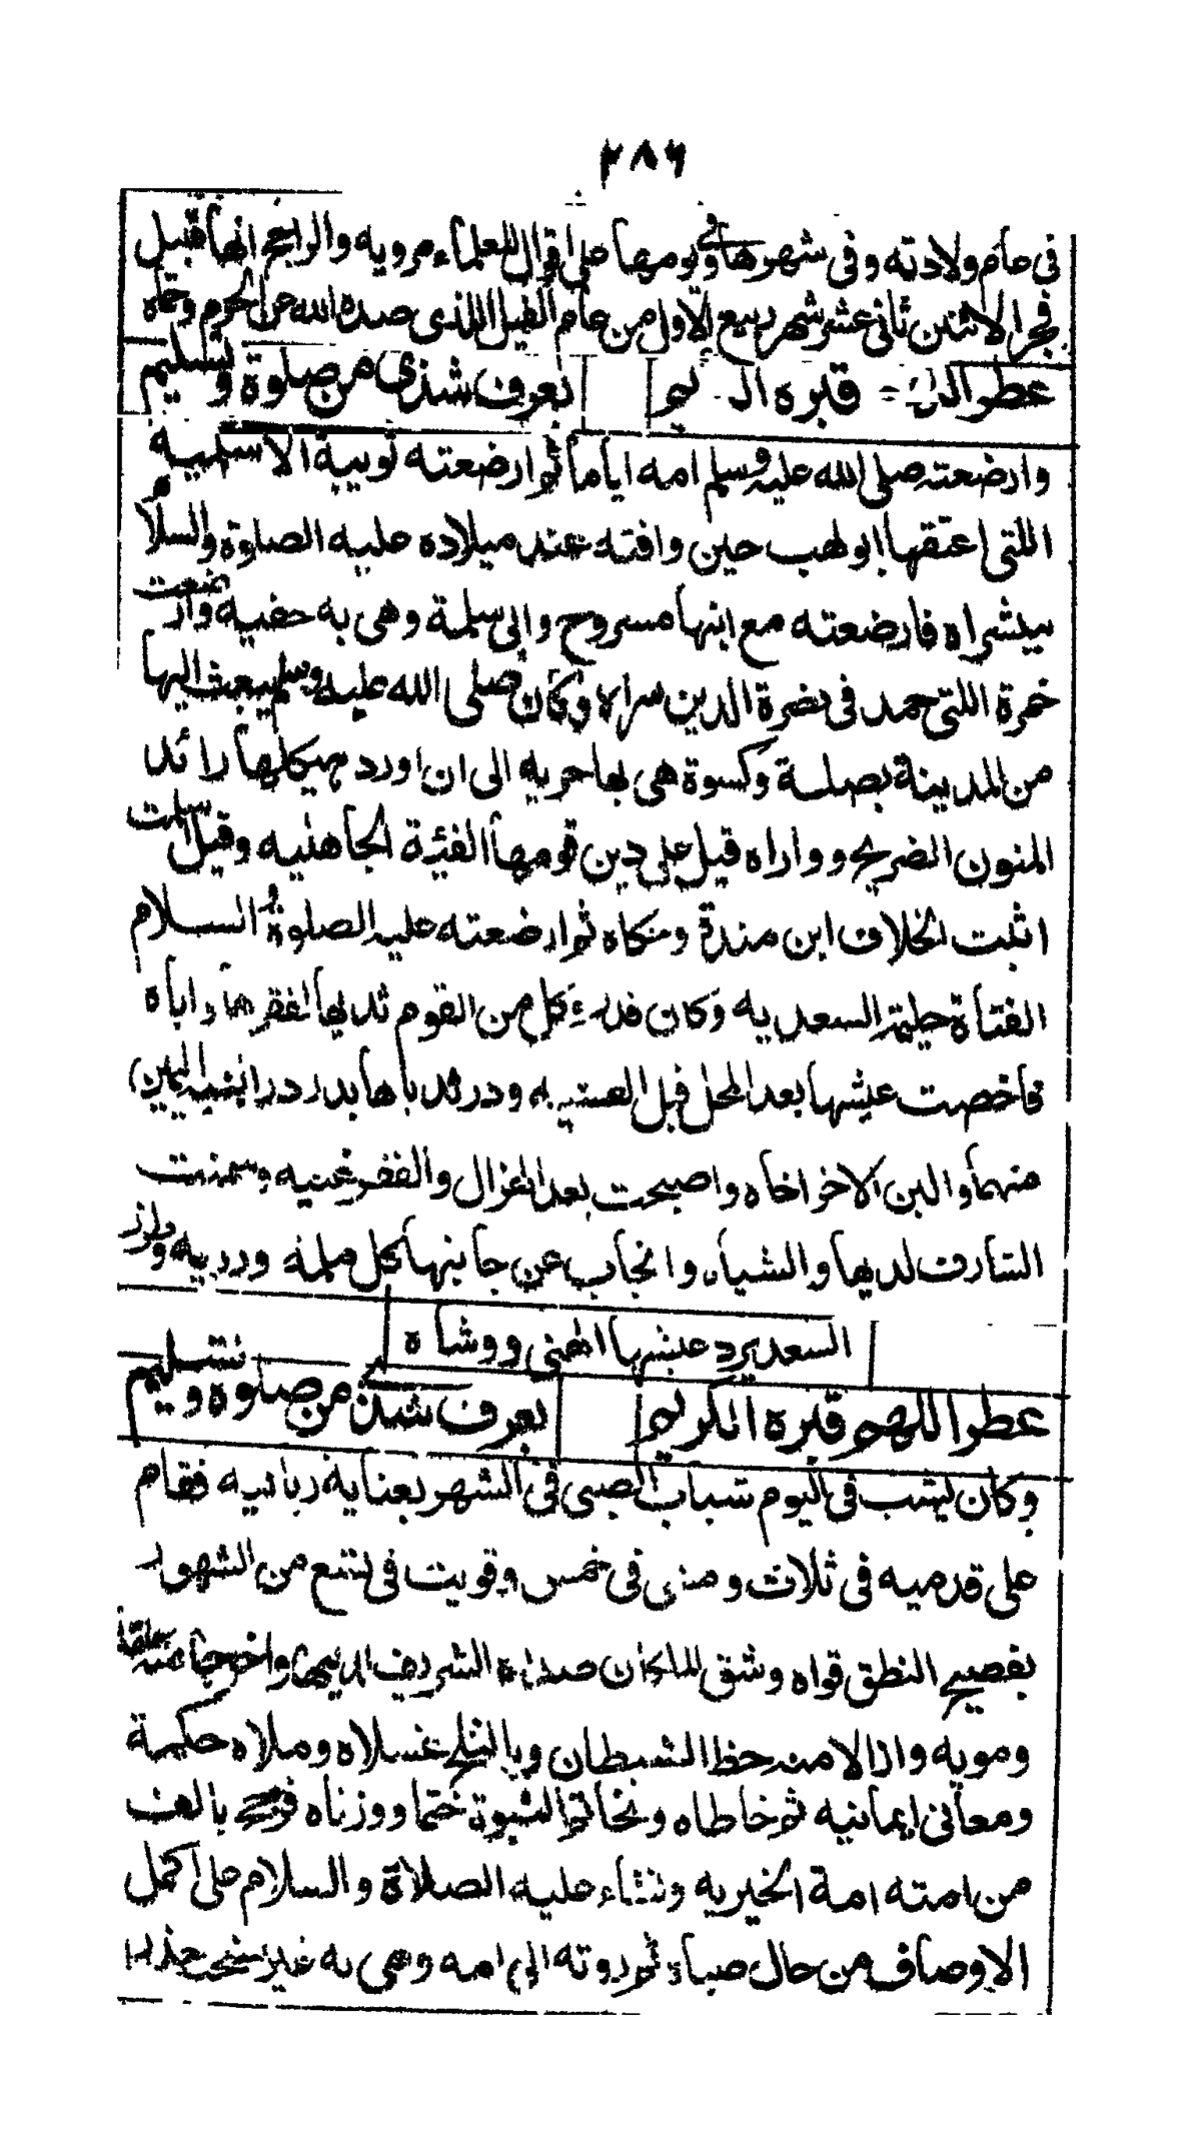 ٢٨٦
في عام ولادته وفي شهرها وفي يومها على اقوال للعلماء مرويه والراجح انها قبيل
فجر الاثنين ثاني عشر شهر ربيع الاول من عام الفيل اللذي صده الله عن الحرم وحماه
عطر قبره بعرف شذي من صلوة وتسليم
وارضعته صلى الله عليه وسلم امه اياما ثم ارضعته ثويبة الاسلمية
اللتي اعتقها ابو لهب حين وافته عند ميلاده عليه الصلوة والسلام
ببشراه فارضعته مع ابنها مسروح وابي سلمة وهي به حفيه وارضعت
حمزة اللتي حمد في نصرة الدين سراه وكان صلى الله عليه وسلم يبعث اليها
من المدينة بصلة وكسوة هي بها حريه الى ان اورد هيكلها رائد
المنون الضريح وواراه قيل على دين قومها الفئة الجاهليه وقيل اسلمت
اثبت الخلاف ابن مندة وحكاه ثم ارضعته عليه الصلوة و السلام
الفتاة حليمة السعديه وكان كل من القوم ثديها لفقرها واباه
فاخصبت عيشها بعد المحل قبل العشيه ودر ثدياها بدر در
منهما والبن الاخر اخاه واصبحت بعد الهزال والفقر غنيه وسمنت
الشارف لديها والشياه وانجاب عن جانبها كل ملمة ورزيه وطرز
السعد برد عيشها الهني ووشاه
عطر اللهم قبره الكريم بعرف شذي من صلوة وتسليم
وكان يشب في اليوم شباب الصبي في الشهر بعناية ربانيه فقام
على قدميه في ثلاث ومشى في خمس وقويت في تسع من الشهور
بفصيح النطق قواه وشق الملكان صدره الشريف لديها واخرجا منه علقة
دمويه وازالا منه حظ الشيطان وبالثلج غسلاه وملاه حكمة
ومعاني ايمانيه ثم خاطاه وبخاتم النبوة ختما ووزناه بالف
من امته امة الخيريه ونشاء عليه الصلاة والسلام على اكمل
الاوصاف من حال صباه ثم ردته الي امه وهي به غير سخيه حذرا